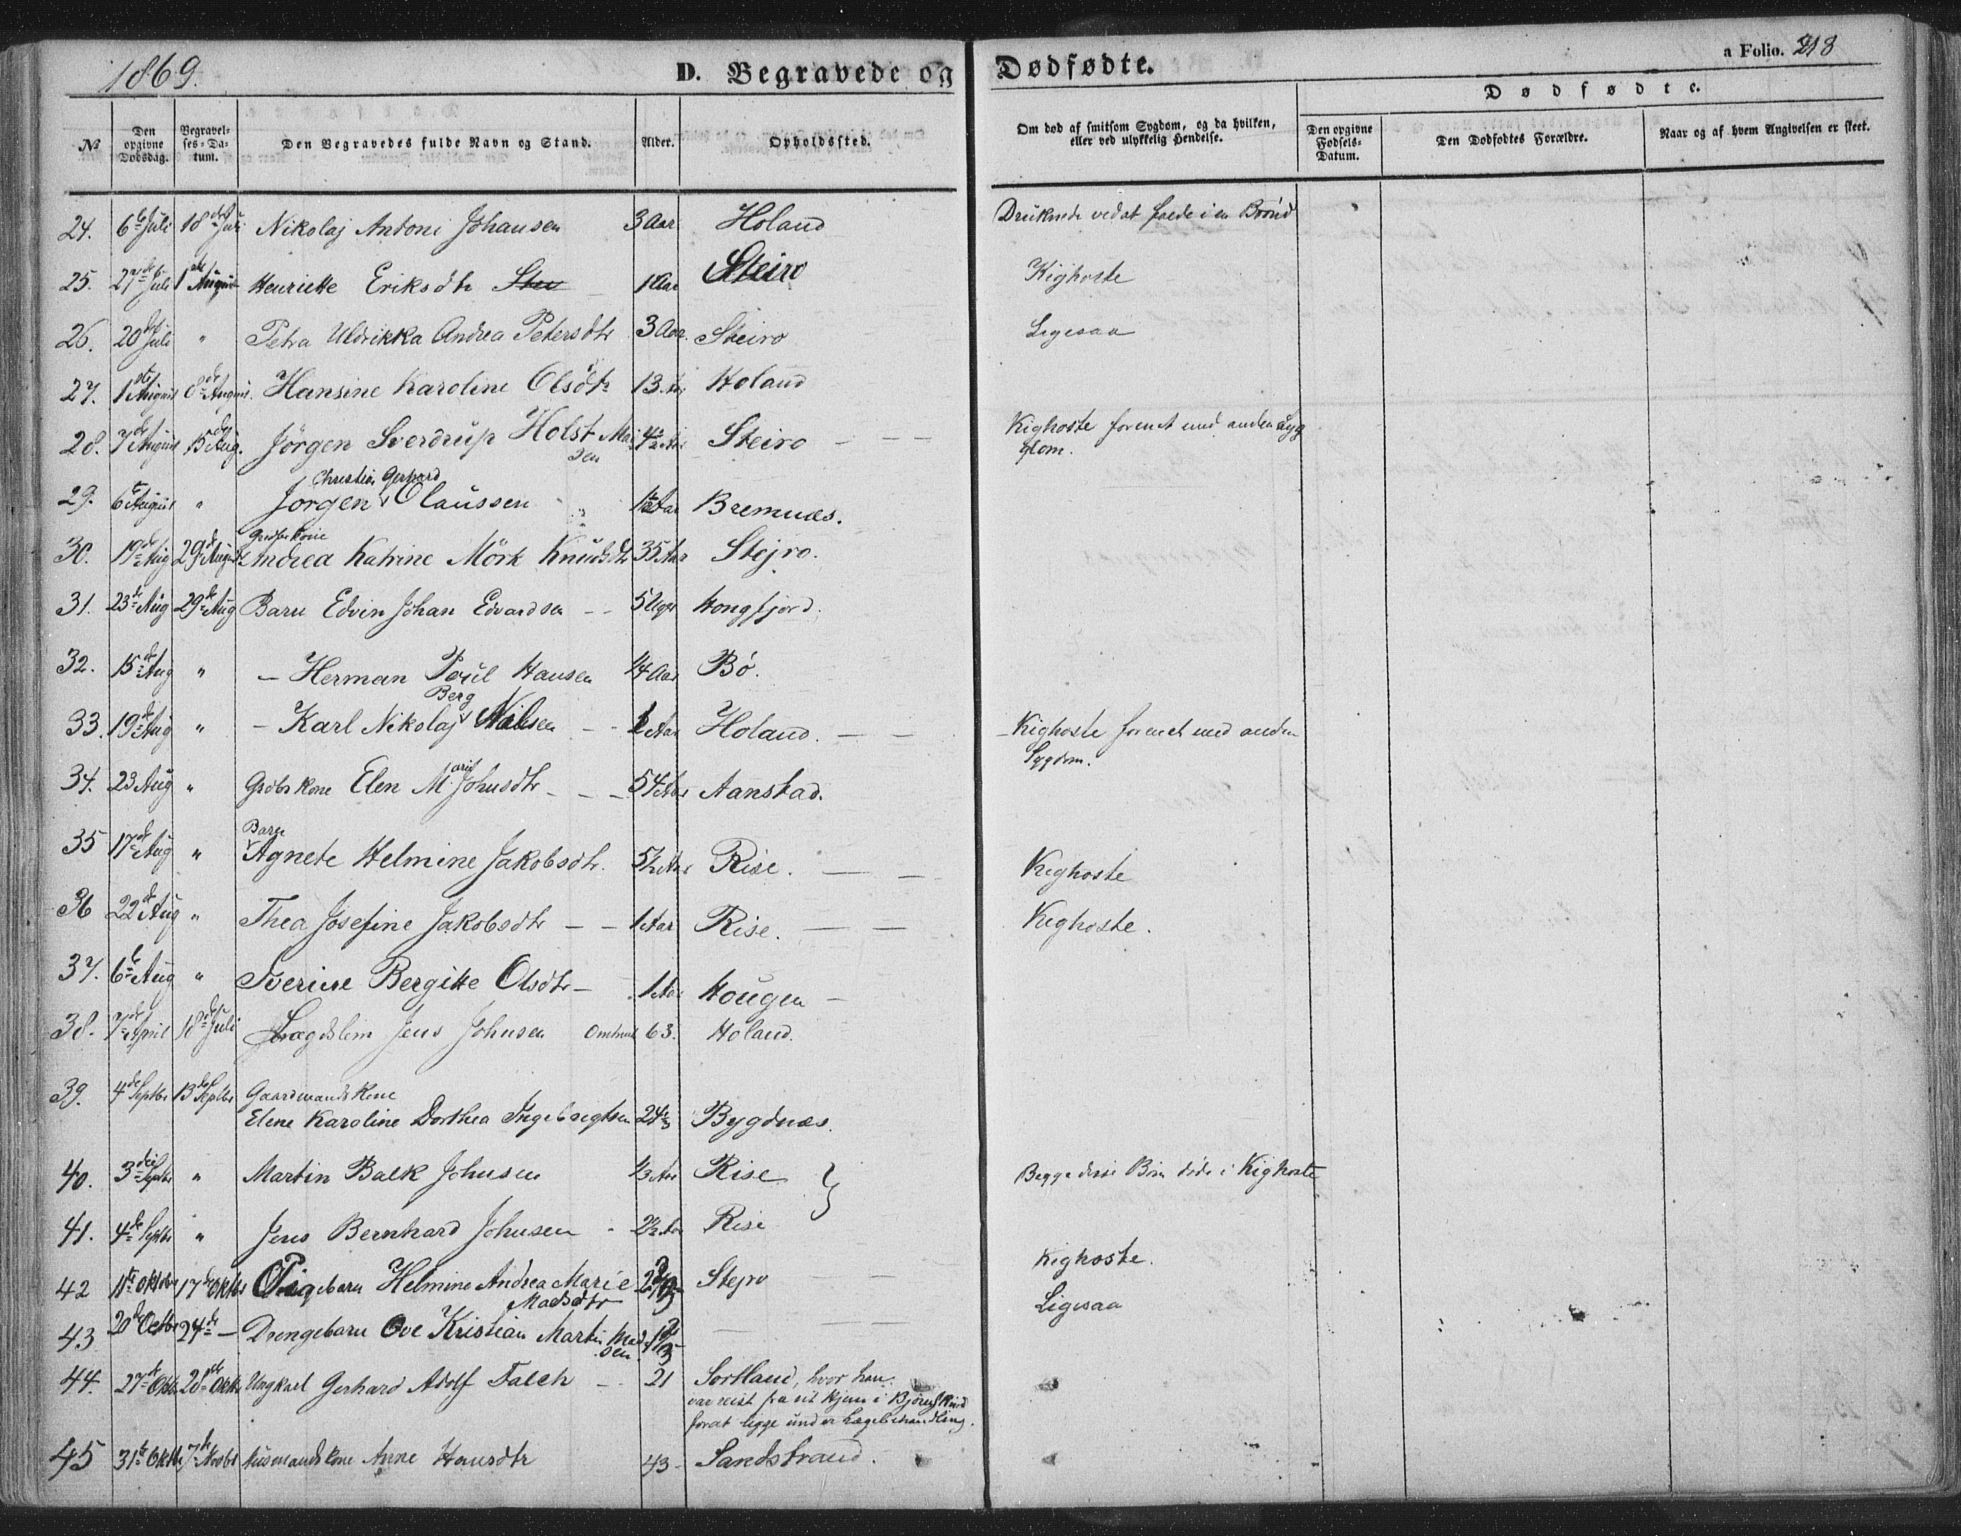 1869.
D. Begravede og Dødfødte.
a Folio. 218
Dødfødte.
№ Den opgivne Dødsdag. Begravelses-Datum. Den Begravedes fulde Navn og Stand. Alder. Opholdssted. Om død af smitsom Sygdom, og da hvilken, eller ved ulykkelig Hendelse. Den opgivne Fødsels-Datum. Den Dødfødtes Forældre. Naar og af hvem Angivelsen er skeet.
24. 6te Juli 18de Juli Nikolaj Antoni Johansen 3 Aar Holand Druknede ved at falde i en Brønd
25. 27de Juli 1ste August Henriette Eriksdtr 1 Aar Steiro Kighoste
26. 20de Juli " Petra Uldrikka Andrea Petersdtr 3 Aar. Steiro Ligesaa
27. 1ste August 8de August. Hansine Karoline Olsdtr 13. Holand
28. 7de August 15de Aug. Jörgen Sverdrup Holst Madsen Aar Steiro — — — Kighoste forenet med anden Syg
dom.
29. 6te August " Jörgen Christian Gerhard Olaussen Aar Bremnæs.
30. 19de Aug 29de August Andrea Katrine Mörk Knudsdtr 35 Aar Stejro.
31. 23de Aug 29de Aug Barn Edvin Johan Edvardsen – – 5 Uger Hongfjord.
32. 15de Aug " – Herman Poul Hansen 1/4 Aar Bø.
33. 19de Aug " – Karl Nikolaj Berg Nilsen – – Aar Holand. — — – Kighoste forenet med anden
Sygdom.
34. 23 Aug " Elen Marit Johnsdtr – – – 54 Aar Aanstad.
35 17de Aug " Barn Agnete Helmine Jakobsdtr. 5½ Aar Rise. — — Kighoste
36 22de Aug " Thea Josefine Jakobsdtr – – 1 Aar Rise. — — Kighoste.
37. 6te Aug " Sverine Bergitte Olsdtr – 1 Aar Hougen –
38. 7de April 18de Juli Lægdslem Jens Johnsen omtrent 63. Holand.
39. 4de Septbr 13de Septbr Gaardmandskone
Elene Karoline Dorthea Ingebrigtsen 24 Bygdnæs.
40. 3die Septbr " Martin Balk Johnsen Aar Rise } Begge disse Børn døde i Kighoste
41. 4de Septbr " Jens Bernhard Johnsen – 2½ Aar Rise
42 11te Oktober 17de Oktbr Pigebarn Helmine Andrea Marie
Madsdtr Stejro — — Kighoste.
43 20de Octbr 24de – Drengebarn Ove Kristian Martin Madsen — — — Ligesaa
44. 27de Oktbr 28de Oktbr Ungkarl Gerhard Adolf Falch – – 21 Sortland, hvor han
var reist fra sit Hjem i Bjørnskind
forat ligge under Lægebehandling.
45 31te Oktbr 7de Novbr Husmandskone Anne Hansdtr 43 – Sandstrand.